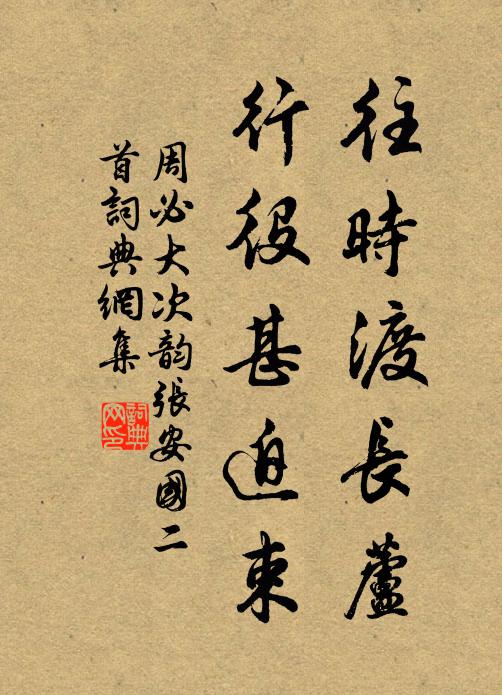 往時渡長蘆
行役甚迫束
周必大次韵張安國二
首詞典網集
詞典
网印